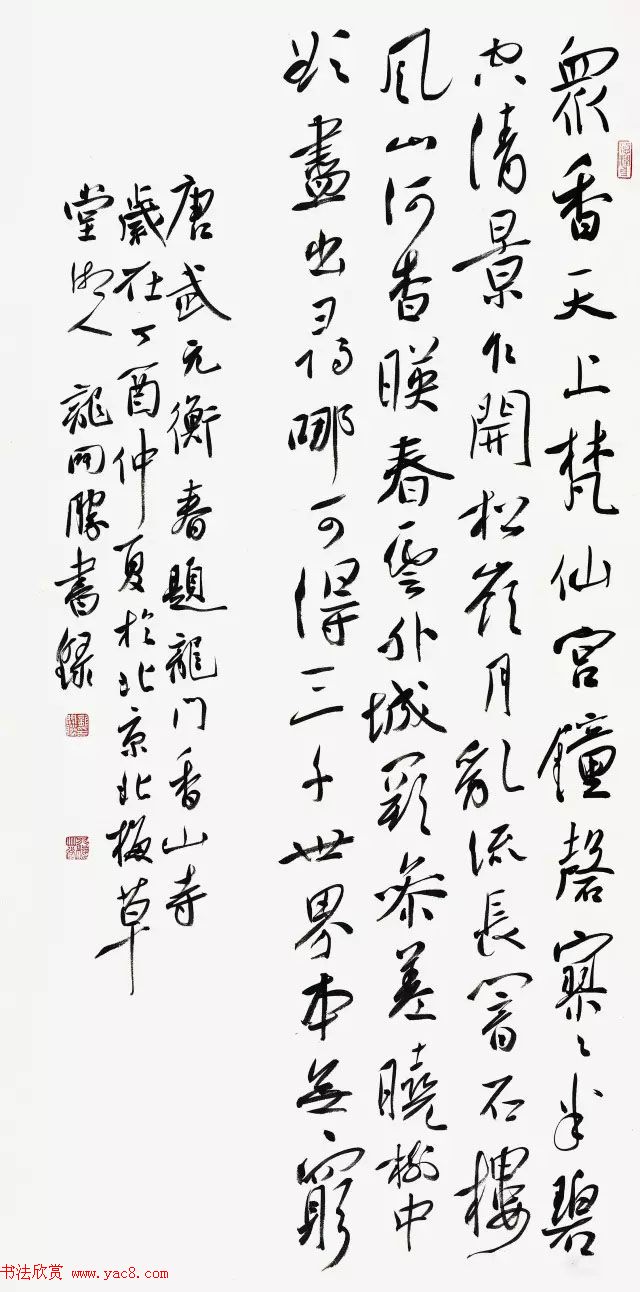 眾香天上梵仙宮鐘磬寥々半碧
空清景乍開松嶺月亂流長響石樓
風山河杳暎春雲外城闕參差曉樹中
欲盡出尋哪可得三千世界本無窮
唐武元衡春題龍門香山寺
歲在丁酉仲夏於北京北梅草
堂湘人 龍開勝書錄
书法欣赏 www.yac8.com